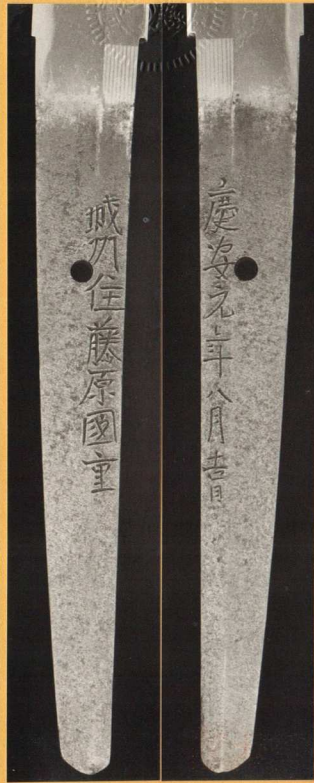 城州住藤原國重
慶安元年八月吉日